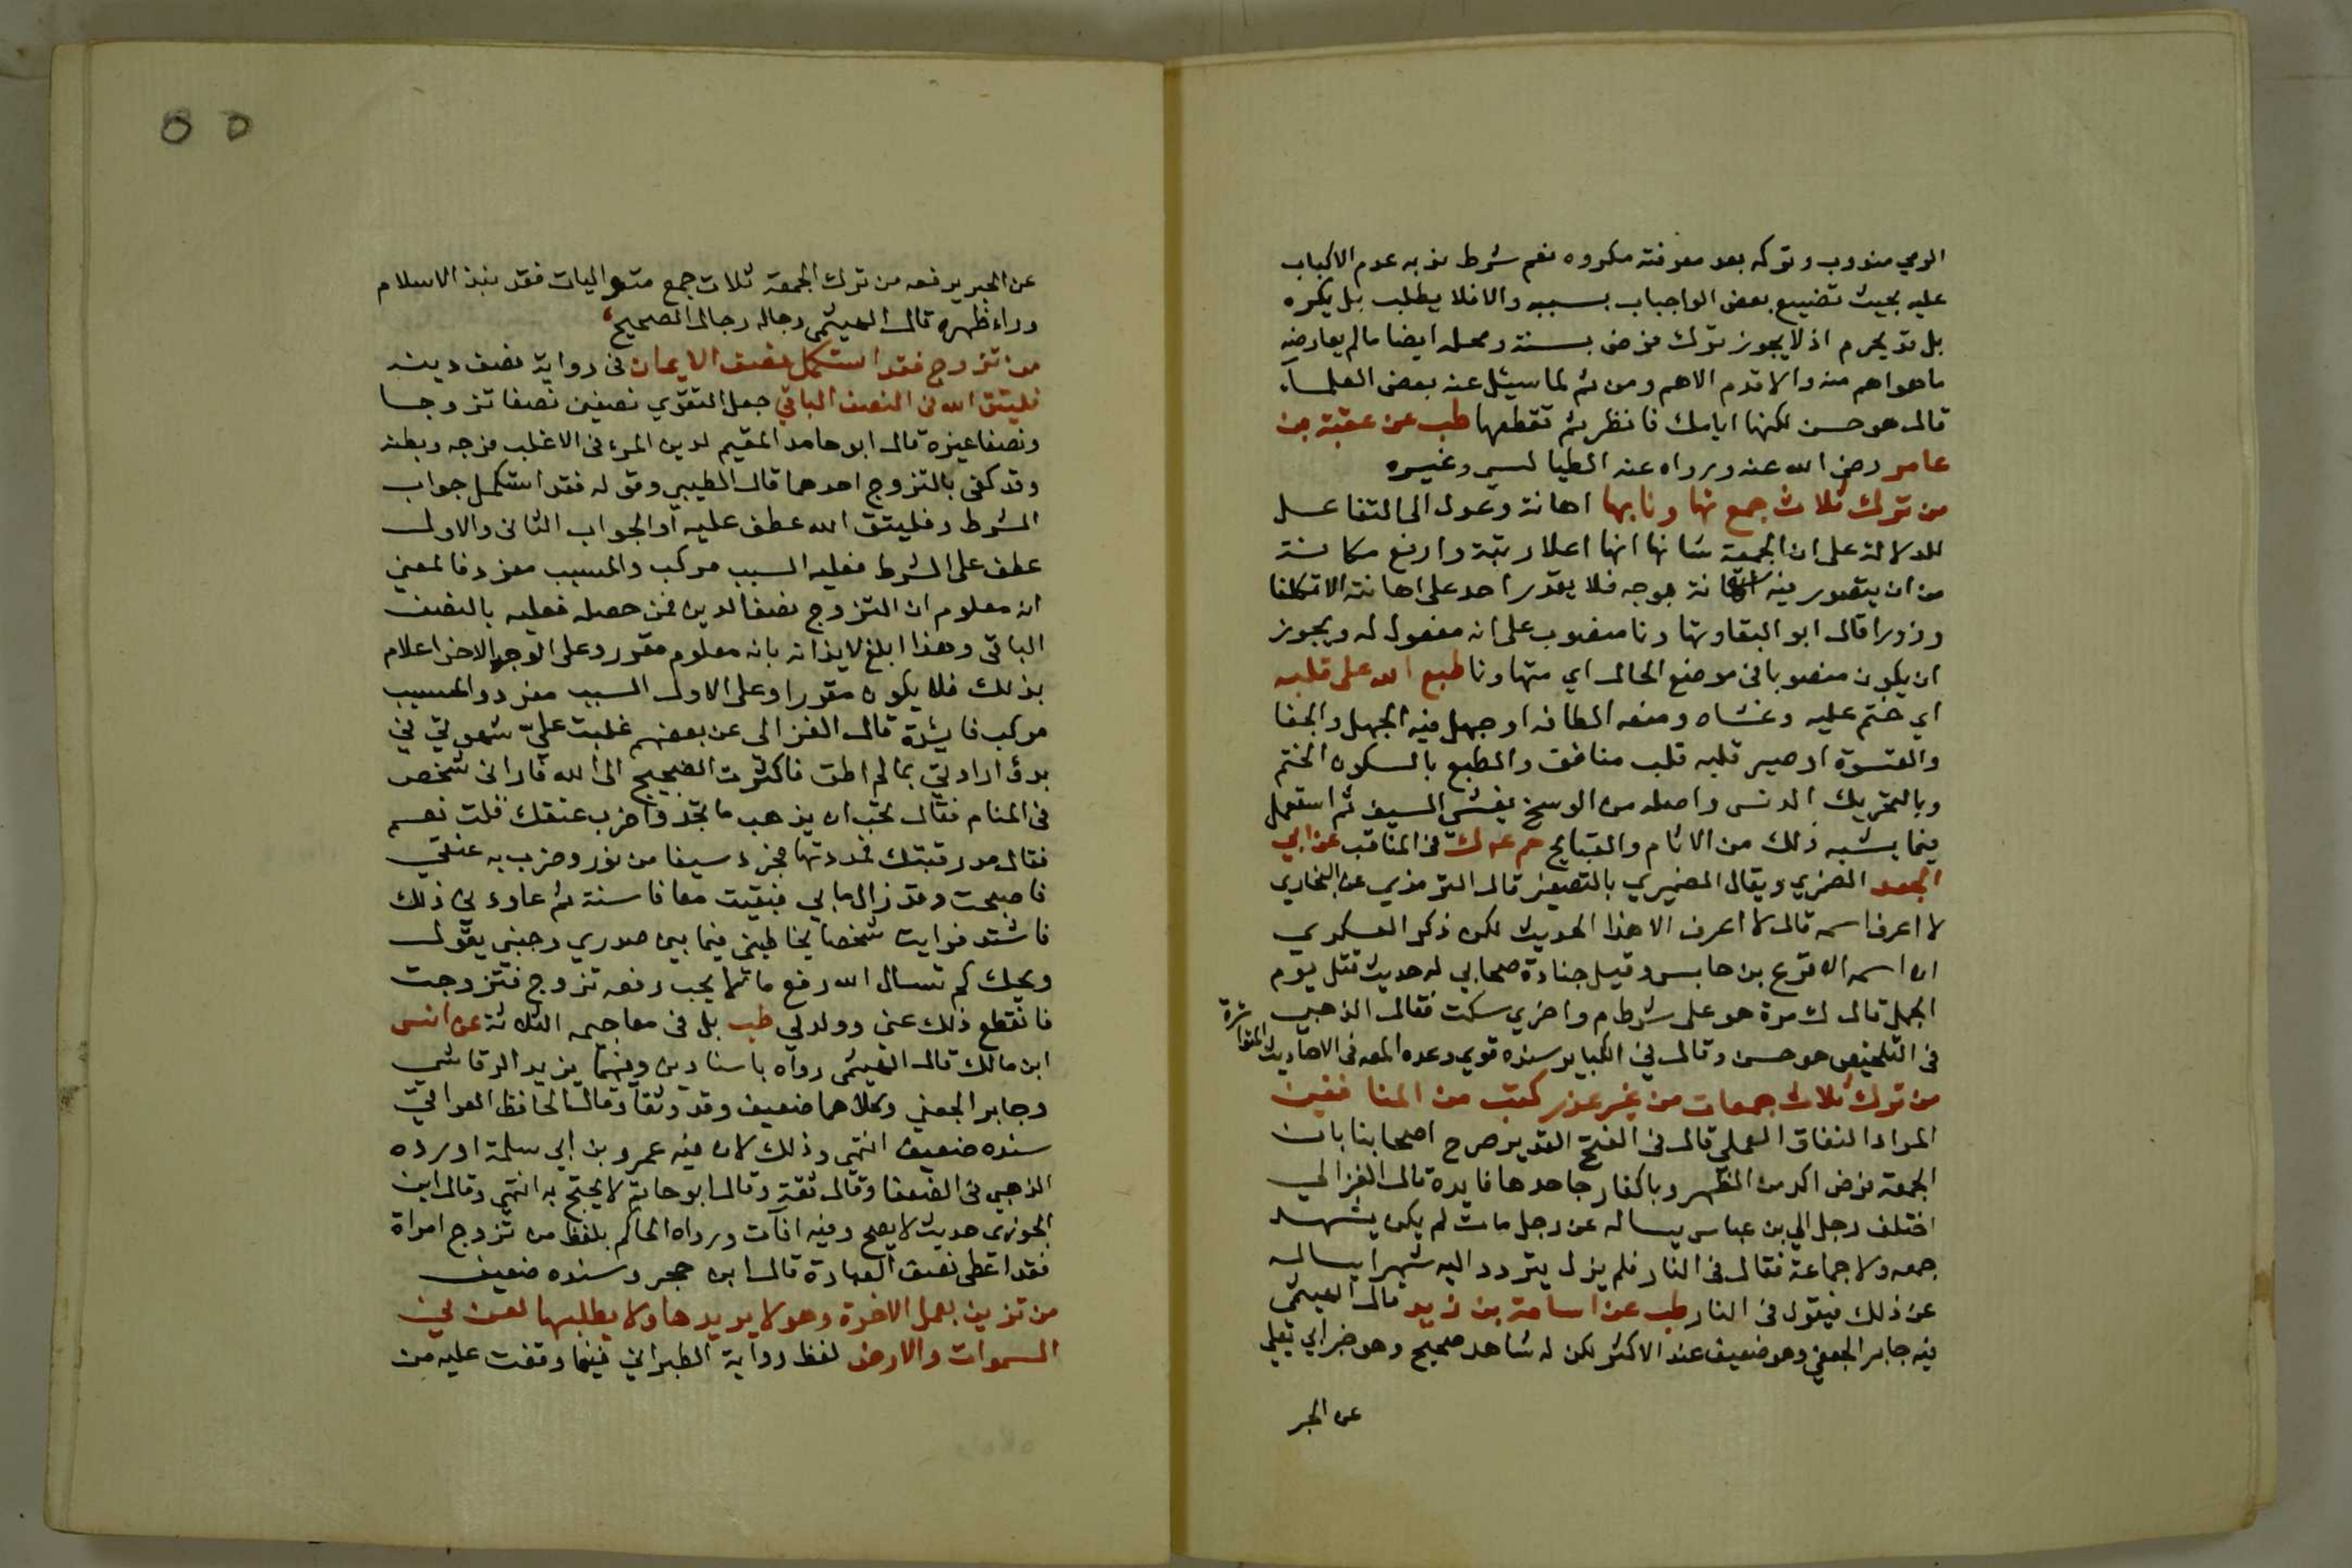 الرمي مندوب وتركه بعد معرفته مكروه نعم شرط ندبه عدم الاكباب
عليه بحيث تضييع بعض الواجباب بسببه والا فلا يطلب بل يكره
بل قد يحرم اذ لا يجوز ترك فرض بسنة ومحله ايضا مالم يعارضه
ما هو اهم منه والا قدم الاهم ومن ثم لما سيئل عنه بعض العلماء
قال هو حسن لكنها ايامك فانظر بم تقطعها طب عن عقبة بن
عامر رضى الله عنه ورواه عنه الطيالسي وغيره
من ترك ثلاث جمع تهاونا بها اهانة وعدل الى التفاعل
للدلالة على ان الجمعة شانها انها اعلا رتبة وارفع مكانة
من ان يتصور فيه اهانة بوجه فلا يقدر احد على اهانته الا تكلفا
وزورا قال ابو البقا وتهاونا منصوب على انه مفعول له ويجوز
ان يكون منصوبا فى موضع الحال اي متهاونا طبع الله على قلبه
اي ختم عليه وغشاه ومنعه الطافه او جعل فيه الجهل والجفا
والقسوة او صير قلبه قلب منافق والطبع بالسكون الختم
وبالتحريك الدنس واصله من الوسخ يغشى السيف ثم استعمل
فيما يشبه ذلك من الاثام والقبايح حم عه ك فى المناقب عن ابي
الجعد الضمري ويقال الضميري بالتصغير قال الترمذي عن البخاري
لا اعرف اسمه قال لا اعرف الا هذا الحديث لكن ذكر العسكري
ان اسمه الاقرع بن حابس وقيل جنادة صحابي له حديث قتل يوم
الجمل قال ك مرة هو على شرط م واخري سكت فقال الذهبي
فى التلخيص هو حسن وقال في الكباير سنده قوي وعده المص فى الاحاديث المتواترة
من ترك ثلاث جمعات من غير عذر كتب من المنافقين
المراد النفاق العملي قال فى الفتح القدير صرح اصحابنا بان
الجمعة فرض اكد من الظهر وباكفار جاحدها فايدة قال الغزالي
اختلف رجل الي بن عباس يساله عن رجل مات لم يكن يشهد
جمعه ولا جماعة فقال فى النار فلم يزل يتردد اليه شهرا يساله
عن ذلك فيقول فى النار طب عن اسامة بن زيد قال الهيثمى
فيه جابر الجعفي وهو ضعيف عند الاكثر لكن له شاهد صحيح وهو خبر ابي يعلي
عن الحبر
عن الحبر يرفعه من ترك الجمعة ثلاث جمع متواليات فقد نبذ الاسلام
وراء ظهره قال الهيثمى رجاله رجال الصحيح
من تزوج فقد استكمل نصف الايمان فى رواية نصف دينه
فليتق الله فى النصف الباقي جعل التقوي نصفين نصفا تزوجا
ونصفا غيره قال ابو حامد المقيم لدين المرء فى الاغلب فرجه وبطنه
وقد كفى بالتزوج احدهما قال الطيبي وقوله فقد استكمل جواب
الشرط وفليتق الله عطف عليه او الجواب الثانى والاول
عطف على الشرط فعليه السبب مركب والمسبب مفرد فالمعني
انه معلوم ان التزوج نصف الدين فمن حصله فعليه بالنصف
الباقى وهذا ابلغ لايذانه بانه معلوم مقرر وعلى الوجه الاخر اعلام
بذلك فلا يكون مقررا وعلى الاول السبب مفرد والمسبب
مركب فايدة قال الغزالى عن بعضهم غلبت عليّ شهوتي في
بدؤ ارادتي بما لم اطق فاكثرت الضجيج الى الله فارانى شخص
فى المنام فقال تحب ان يذهب ما تجد واضرب عنقك قلت نعم
فقال مد رقبتك فمددتها فجرد سيفا من نور وضرب به عنقي
فاصبحت وقد زال ما بي فبقيت معافا سنة ثم عاود لي ذلك
فاشتد فرايت شخصا يخاطبنى فيما بين صدري وجنبي يقول
ويحك كم تسال الله رفع ما لا يحب رفعه تزوج فتزوجت
فانقطع ذلك عني وولد لي طب بل فى معاجيمه الثلاثة عن انس
ابن مالك قال الهيثمى رواه باسنادين وفيهما يزيد الرقاشي
وجابر الجعفي وكلاهما ضعيف وقد وثقا وقال الحافظ العراقي
سنده ضعيف انتهى وذلك لان فيه عمرو بن ابي سلمة اورده
الذهبي فى الضعفا وقال ثقة وقال ابو حاتم لا يحتج به انتهى وقال ابن
الجوزى حديث لا يصح وفيه افات ورواه الحاكم بلفظ من تزوج امراة
فقد اعطى نصف العبادة قال ابن حجر وسنده ضعيف
من تزين بعمل الاخرة وهو لا يريدها ولا يطلبها لعن في
السموات والارض لفظ رواية الطبراني فيما وقفت عليه من